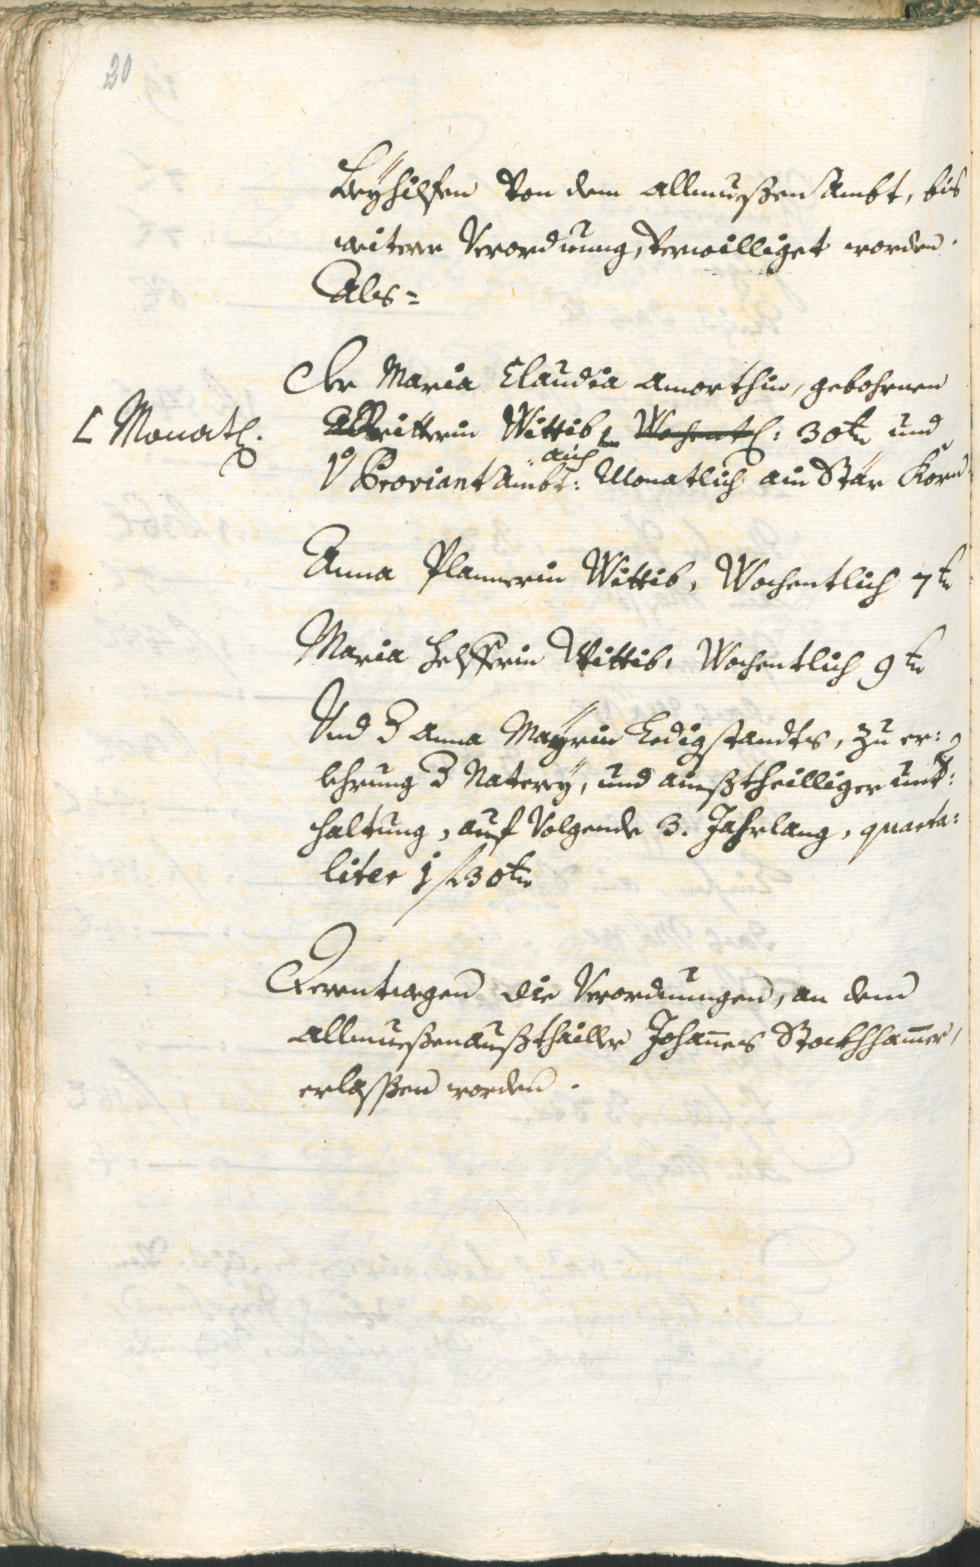 30
Beyhilfen von dem Allmueßen Ambt, bis
weitere Verordnung, verwilliget worden.
Als=
Der Maria Claudia Amorthin, gebohrnen
Wittib, Wochentl: 30 kr und
Monatl:
auch
Proviant Ambt: Monatlich ain Stär Korn
Anna Plannerin Wittib, Wochentlich 7 kr
Maria Helfferin Wittib, Wochentlich 9 kr
Und d Anna Mayrin Ledigstandts, zu er:
lehrung d Naterey, und ainßtheilliger unt:
haltung, auf Volgende 3. Jahrlang, quarta:
liter 1 f 30 kr
Derentwegen die Verordnungen, an dem
Allmueßenaußthailler Johannes Stockhhamer,
erlaßßen worden.